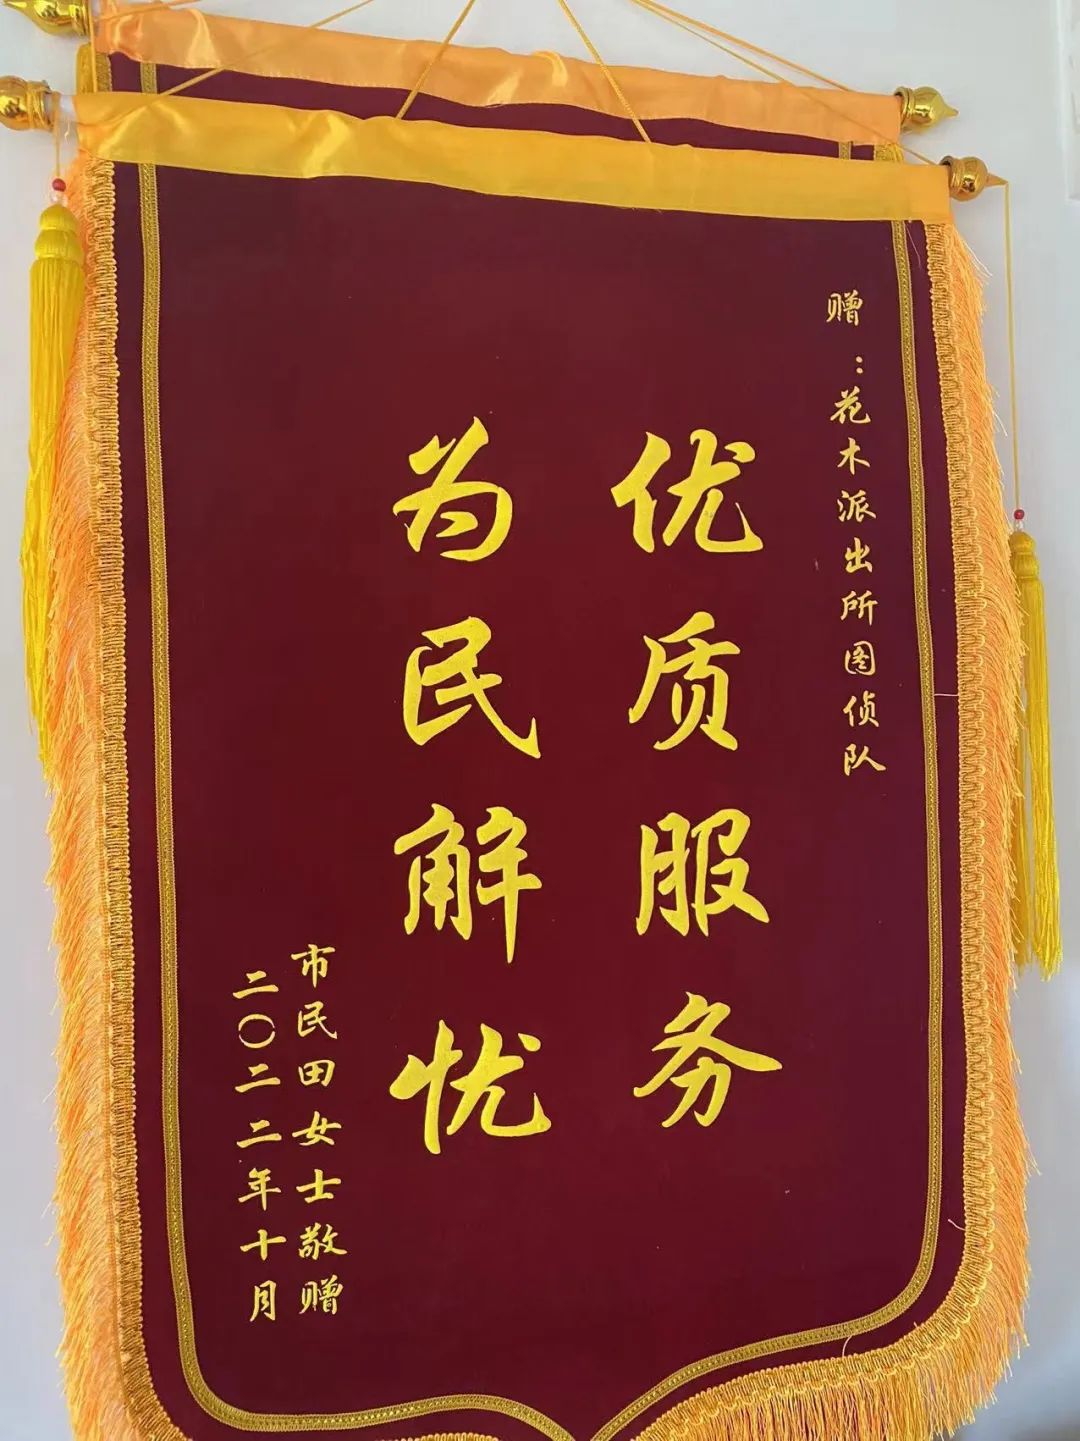 赠：花木派出所图侦队
优质服务
为民解忧
市民田女士敬赠
二〇二二年十月